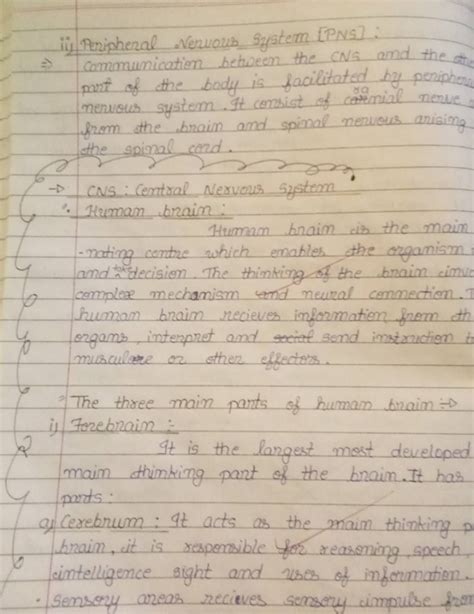 ii) Peripheral Nervous System [PNS] :
⇒ Communication between the CNS and the othe
part of the body is facilitated by periphera
nervous system. It consist of cranial nerve
from the brain and spinal nervous arising
the spinal cord.
→ CNS : Central Nervous System
Human brain :
Human brain is the main
-nating centre which enables the organism
and decision. The thinking of the brain
complex mechanism and neural connection. T
human brain recieves information from
organs, interpret and social send instruction
or other effectors.
→ The three main parts of human brain ⇒
i) Forebrain :-
It is the largest most developed
main thinking part of the brain. It has
parts :
a) Cerebrum : It acts as the main thinking
brain, it is responsible for reasoning, speech,
intelligence sight and uses of information.
sensory areas recieves sensory impulse from